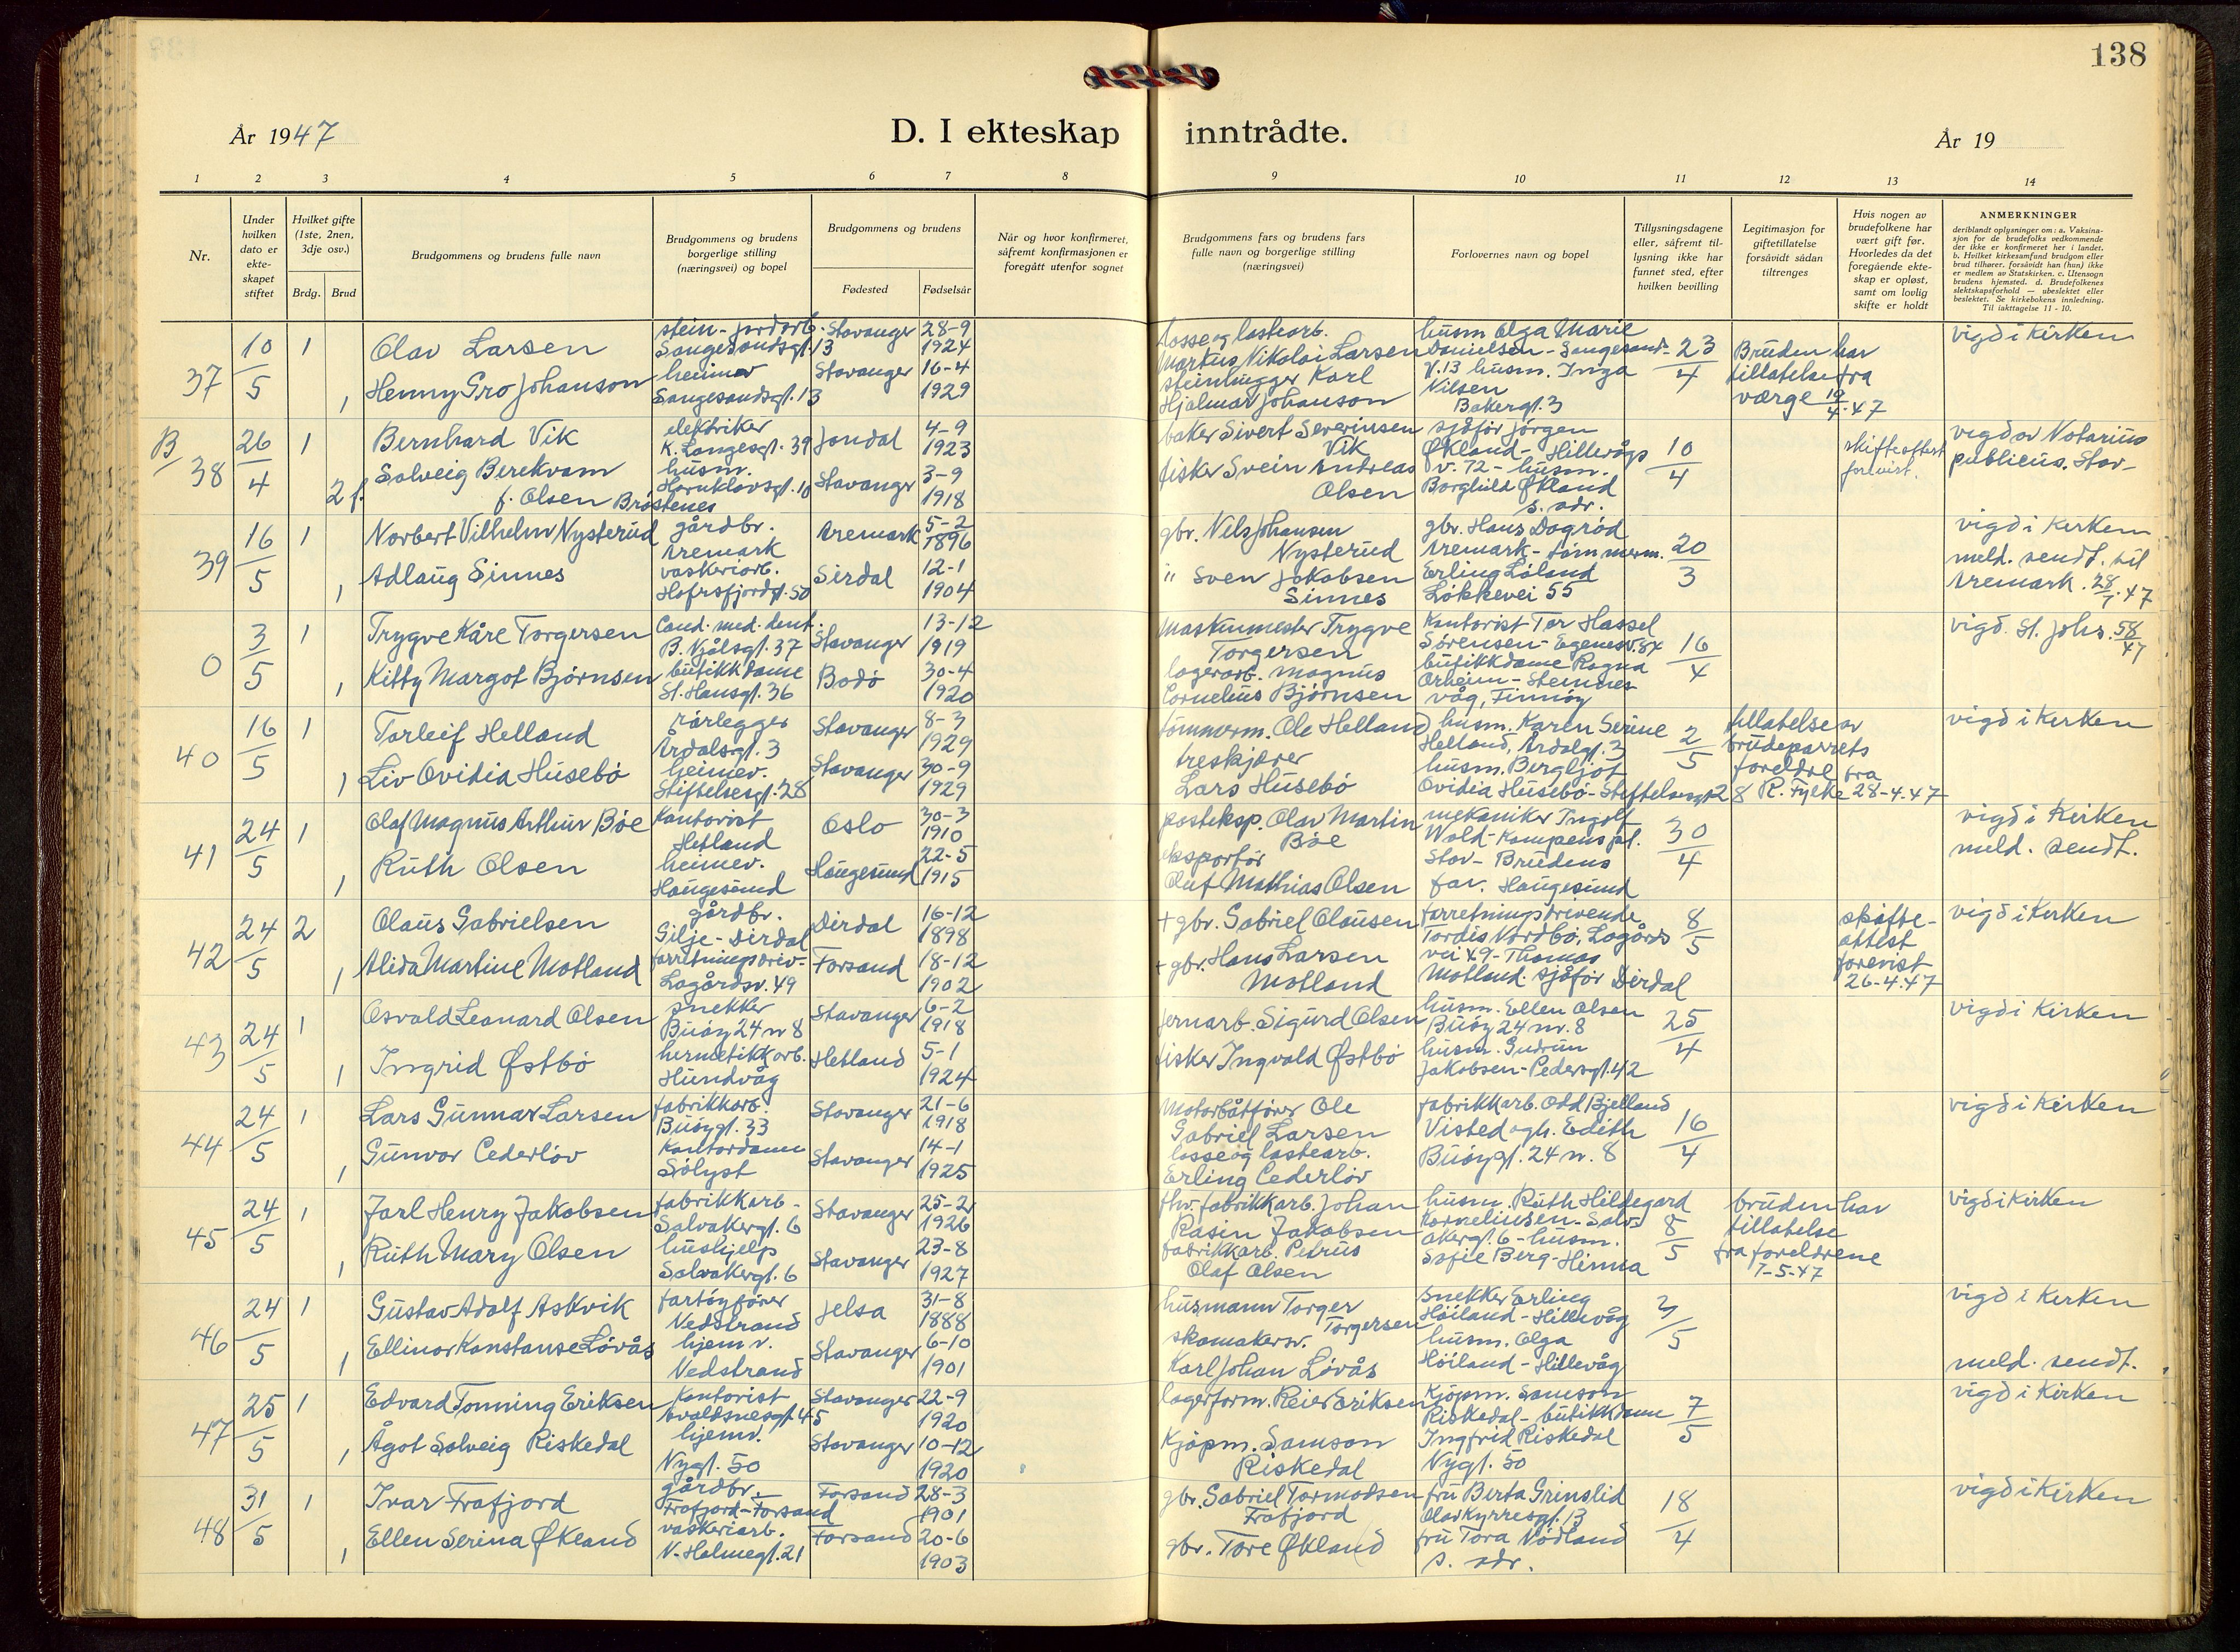 138
År 1947
D. I ekteskap inntrådte.
År 19
1 2 3 4 5 6 7 8 9 10 11 12 13 14
Nr.
Under hvilken dato er ekteskapet stiftet
Hvilket gifte (1ste, 2nen, 3dje osv.)
Brdg. Brud
Brudgommens og brudens fulle navn
Brudgommens og brudens borgerlige stilling (næringsvei) og bopel
Brudgommens og brudens
Fødested
Fødselsår
Når og hvor konfirmeret, såfremt konfirmasjonen er foregått utenfor sognet
Brudgommens fars og brudens fars fulle navn og borgerlige stilling (næringsvei)
Forlovernes navn og bopel
Tillysningsdagene eller, såfremt tillysning ikke har funnet sted, efter hvilken bevilling
Legitimasjon for giftetillatelse forsåvidt sådan tiltrenges
Hvis nogen av brudefolkene har vært gift før. Hvorledes da det foregående ekteskap er opløst, samt om lovlig skifte er holdt
ANMERKNINGER
deriblandt oplysninger om: a. Vaksinasjon for de brudefolks vedkommende der ikke er konfirmeret her i landet. b. Hvilket kirkesamfund brudgom eller brud tilhører, forsåvidt han (hun) ikke er medlem av Statskirken. c. Utensogn brudens hjemsted. d. Brudefolkenes slektskapsforhold — ubeslektet eller beslektet. Se kirkebokens innledning. Til iakttagelse 11 - 10.
37 10/5 1 Olav Larsen stein- jordarb. Sangesandsgt. 13 Stavanger 28-9 1924
1 Henny Gro Johanson heimev Sangesandsgt. 13 Stavanger 16-4 1929
losse og lastearb. Martus Nikolai Larsen
steinhugger Karl Hjalmar Johanson
husm Olga Marie Danielsen - Sangesand- V. 13 husm. Inga Nilsen Bakergt. 3
23/4
Bruden har tillatelse fra værge 19/4-47
vigd i kirken
B 38 26/4 1 Bernhard Vik elektriker K. Langesgt. 39 Jondal 4-9 1923
2 f. Solveig Brekvam f. Olsen Bröstenes husm. Haruklavsgt. 10 Stavanger 3-9 1918
baker Sivert Severinsen Vik
fisker Svein Andreas Olsen
sjåfør Jörgen Økland - Hillevågs v. 72 - husm. Borghild Økland s. adr.
10/4
skifteattest forevist.
vigd av Notarius publicus. Stav-
39 16/5 1 Norbert Vilhelm Nysterud gårdbr. Aremark Aremark 5-2 1896
1 Adlaug Sinnes vaskeriarb. Hafrsfjordgt. 50 Sirdal 12-1 1904
gbr. Nils Johansen Nysterud
" Sven Jakobsen Sinnes
gbr. Hans Dagrød Aremark - tømmerm. Erling Løland Løkkevei 55
20/3
vigd i kirken meld. sendt. til Aremark. 28/7.47
0 3/5 1 Trygve Kåre Torgersen Cand. med. dent. B. Njålsgt. 37 Stavanger 13-12 1919
1 Kitty Margot Bjørnsen butikkdame St. Hansgt. 36 Bodö 30-4 1920
Maskinmester Trygve Torgersen
lagerarb. Magnus Cornelius Bjørnsen
Kontorist Tor Hassel Sørensen - Egenesv. 84 butikkdame Ragna Orheim - Steinnesvåg, Finnöy
16/4
vigd. St. Johs. 58/47
40 16/5 1 Torleif Helland rörlegger Årdalsgt. 3 Stavanger 8-3 1929
1 Liv Ovidia Husebö heimev. Stiftelsesgt. 28 Stavanger 30-9 1929
tömmerm. Ole Helland
treskjærer Lars Husebö
husm. Karen Serine Helland, Årdalgt. 3 husm. Bergljot Ovidia Husebö - Stiftelsesgt 28
2/5
tillatelse av brudeparrets foreldre fra R. Fylke 28-4-47
vigd i kirken
41 24/5 1 Olaf Magnus Arthur Böe Kontorist Hetland Oslo 30-3 1910
1 Ruth Olsen heimev. Haugesund Haugesund 22-5 1915
posteksp. Olav Martin Böe
eksportör Oluf Mathias Olsen
mekaniker Ingolf Wold - Kampens pl. Stav - Brudens far. Haugesund
30/4
vigd i kirken meld. sendt.
42 24/5 2 Olaus Gabrielsen gårdbr. Gilje - Dirdal Dirdal 16-12 1898
1 Alida Martine Motland forretningsdriv- Lagårdsv. 49 Forsand 18-12 1902
+ gbr. Gabriel Olausen
+ gbr. Hans Larsen Motland
forretningsdrivende Tordis Nordbö, Lagårds vei 49 - Thomas Motland. sjåför Dirdal
8/5
skifteattest forevist 26-4-47
vigd i kirken
43 24/5 1 Osvald Leonard Olsen snekker Buöy 24 nr 8 Stavanger 6-2 1918
1 Ingrid Østbö hermetikkarb. Hundvåg Hetland 5-1 1924
jernarb. Sigurd Olsen
fisker Ingvald Østbö
husm. Ellen Olsen Buöy 24 nr. 8 husm. Gudrun Jakobsen - Pedersgt. 42
25/4
vigd i kirken
44 24/5 1 Lars Gunnar Larsen fabrikkarb. Buöygt. 33 Stavanger 21-6 1918
1 Gunvor Cederlöv Kontordame Sölyst Stavanger 14-1 1925
Motorbåtförer Ole Gabriel Larsen
losse og lastearb. Erling Cederlöv
fabrikkarb. Odd Bjelland Visted ogh. Edith Buöygt. 24 nr. 8
16/4
vigd i kirken
45 24/5 1 Jarl Henry Jakobsen fabrikkarb - Solvakergt. 6 Stavanger 25-2 1926
1 Ruth Mary Olsen hushjelp Solvakergt. 6 Stavanger 23-8 1927
fhv. fabrikkarb. Johan Rasin Jakobsen
fabrikkarb. Petrus Olaf Olsen
husm. Ruth Hildegard Korneliussen - Solvakergt. 6 - husm. Sofie Berg - Hinna
8/5
bruden har tillatelse fra foreldrene 7-5-47
vigd i kirken
46 24/5 1 Gustav Adolf Askvik fartöyförer Vedstrand Jelsa 31-8 1888
1 Ellinor Konstanse Lövås hjemv. Vedstrand Stavanger 6-10 1901
husmann Torger Torgersen
skomakersv. Karl Johan Lövås
snekker Erling Höiland - Hillevåg husm. Olga Höiland - Hillevåg
3/5
vigd i kirken meld. sendt.
47 25/5 1 Edvard Tonning Eriksen Kontorist Avaldsnesgt. 45 Stavanger 22-9 1920
1 Ågot Solveig Riskedal hjemv. Nygt. 50 Stavanger 10-12 1920
lagerform. Reier Eriksen
Kjöpm. Samson Riskedal
Kjöpm. Samson Riskedal - butikkdame Ingfrid Riskedal Nygt. 50
7/5
vigd i kirken
48 31/5 1 Ivar Frafjord gårdbr. Frafjord - Forsand Forsand 28-3 1901
1 Ellen Serina Økland vaskeriarb. N. Holmegt. 21 Forsand 20-6 1903
gbr. Gabriel Tormodsen Frafjord
gbr. Tore Økland
fru Berta Grimslid Olav Kyrresgt. 13 fru Tora Nödland s. adr.
18/4
vigd i kirken